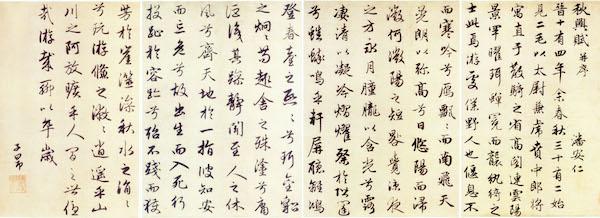 秋興賦 并序
潘安仁
晉十有四年余春秋三十有二始
見二毛以太尉掾兼虎賁中郎將
寓直于散騎之省高閣連雲陽
景罕曜珥蟬冕而襲紈綺之
士此焉游處僕野人也偃息不
而寒吟兮雁飄飄而南飛天
晃朗以彌高兮日悠陽而浸
微何微陽之短晷覺涼夜
之方永月朣朧以含光兮露
淒清以凝冷熠燿粲於階闥
兮蟋蟀鳴乎軒屏聽離鴻
登春臺之熙熙兮珥金貂
之炯炯苟趣舍之殊塗兮庸
詎識其躁靜聞至人之休
風兮齊天地於一指彼知安
而忘危兮故出生而入死行
投趾於容跡兮殆不踐而獲
芳於崖澨澡秋水之涓涓
兮玩游儵之潎潎逍遙乎山
川之阿放曠乎人間之世優
哉游哉聊以卒歲
子昂